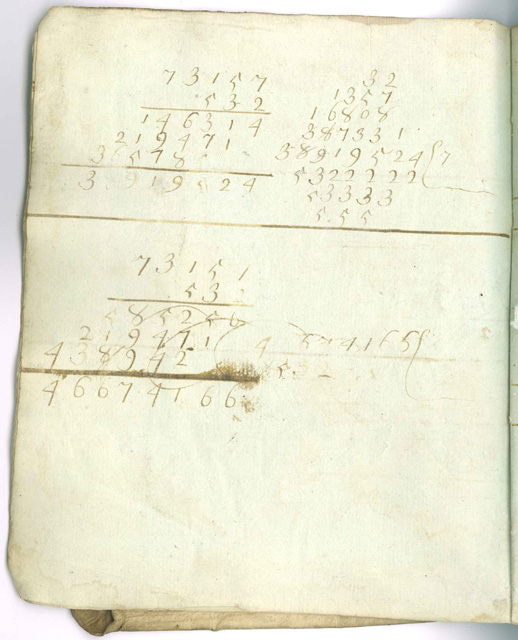 7 3 1 5 7
5 3 2
1 4 6 3 1 4
2 1 9 4 7 1
3 6 5 7 8
3 9 1 9 5 2 4
3 2
1 3 5 7
1 6 8 0 8
3 8 7 3 3 1
3 8 9 1 9 5 2 4 ( 7
5 3 2 2 2 2 2
5 3 3 3 3
5 5 5
7 3 1 5 1
5 3
5 8 5 2 5 6
2 1 9 4 7 1
4 3 8 9 4 2
4 6 6 7 4 1 6 6